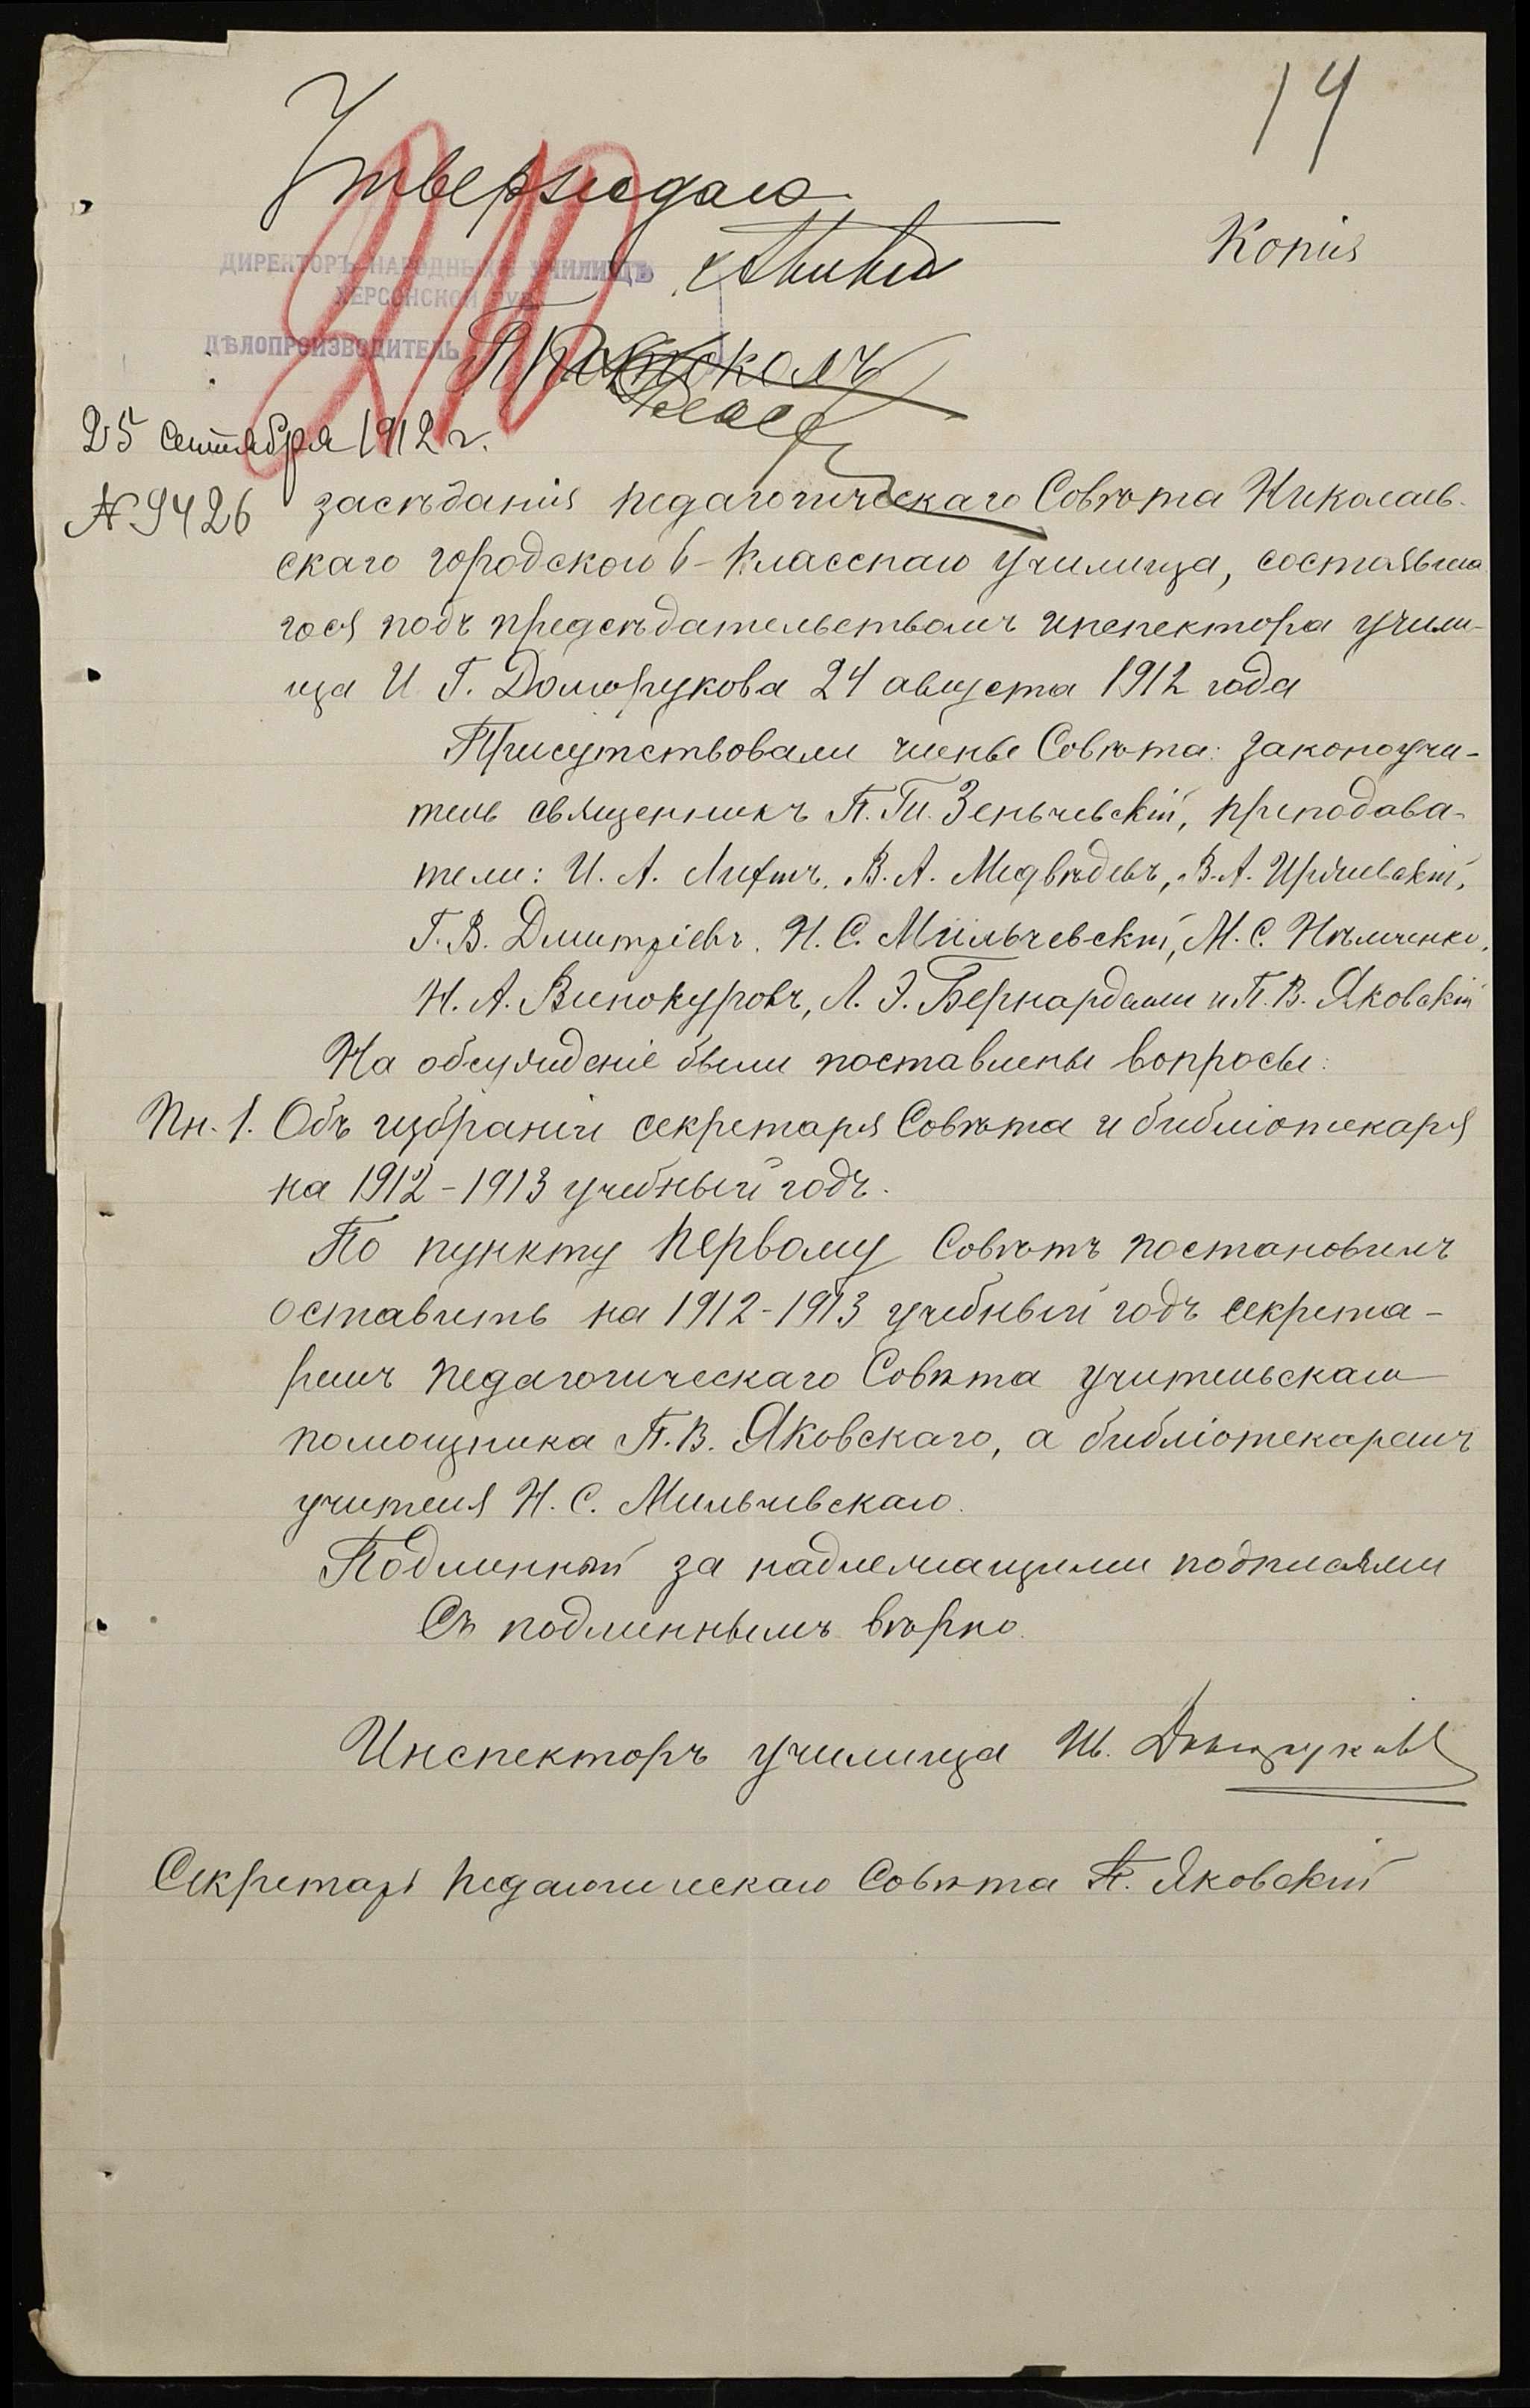 14
Утверждаю
Копія
ДИРЕКТОРЪ НАРОДНЫХЪ УЧИЛИЩЪ
ХЕРСОНСКОЙ ГУБ.
ДѢЛОПРОИЗВОДИТЕЛЬ
Протоколъ
25 сентября 1912 г.
№ 9426
засѣданія педагогическаго Совѣта Николаев-
скаго городского 6-класснаго училища, состоявша
гося подъ предсѣдательствомъ инспектора учили-
ща И. Г. Долгорукова 24 августа 1912 года
Присутствовали члены Совѣта: законоучи-
тель священникъ П. Гл. Зеньчевскій, преподава-
тели: И. А. Лифтъ, В. А. Медвѣдевъ, В. А.
Г. В. Дмитріевъ, Н. С. Мильчевскій, М. С. Нѣмченко,
Н. А. Винокуровъ, Л. Э. Бернардацци и П. В. Яковскій
На обсужденіе были поставлены вопросы:
Пн. 1. Объ избраніи секретаря Совѣта и библіотекаря
на 1912-1913 учебный годъ.
По пункту первому Совѣтъ постановилъ
оставить на 1912-1913 учебный годъ секрета-
ремъ педагогическаго Совѣта учительскаго
помощника П. В. Яковскаго, а библіотекаремъ
учителя Н. С. Мильчевскаго.
Подлинный за надлежащими подписями
Съ подлиннымъ вѣрно.
Инспекторъ училища Ив. Долгоруковъ
Секретарь педагогическаго Совѣта П. Яковскій